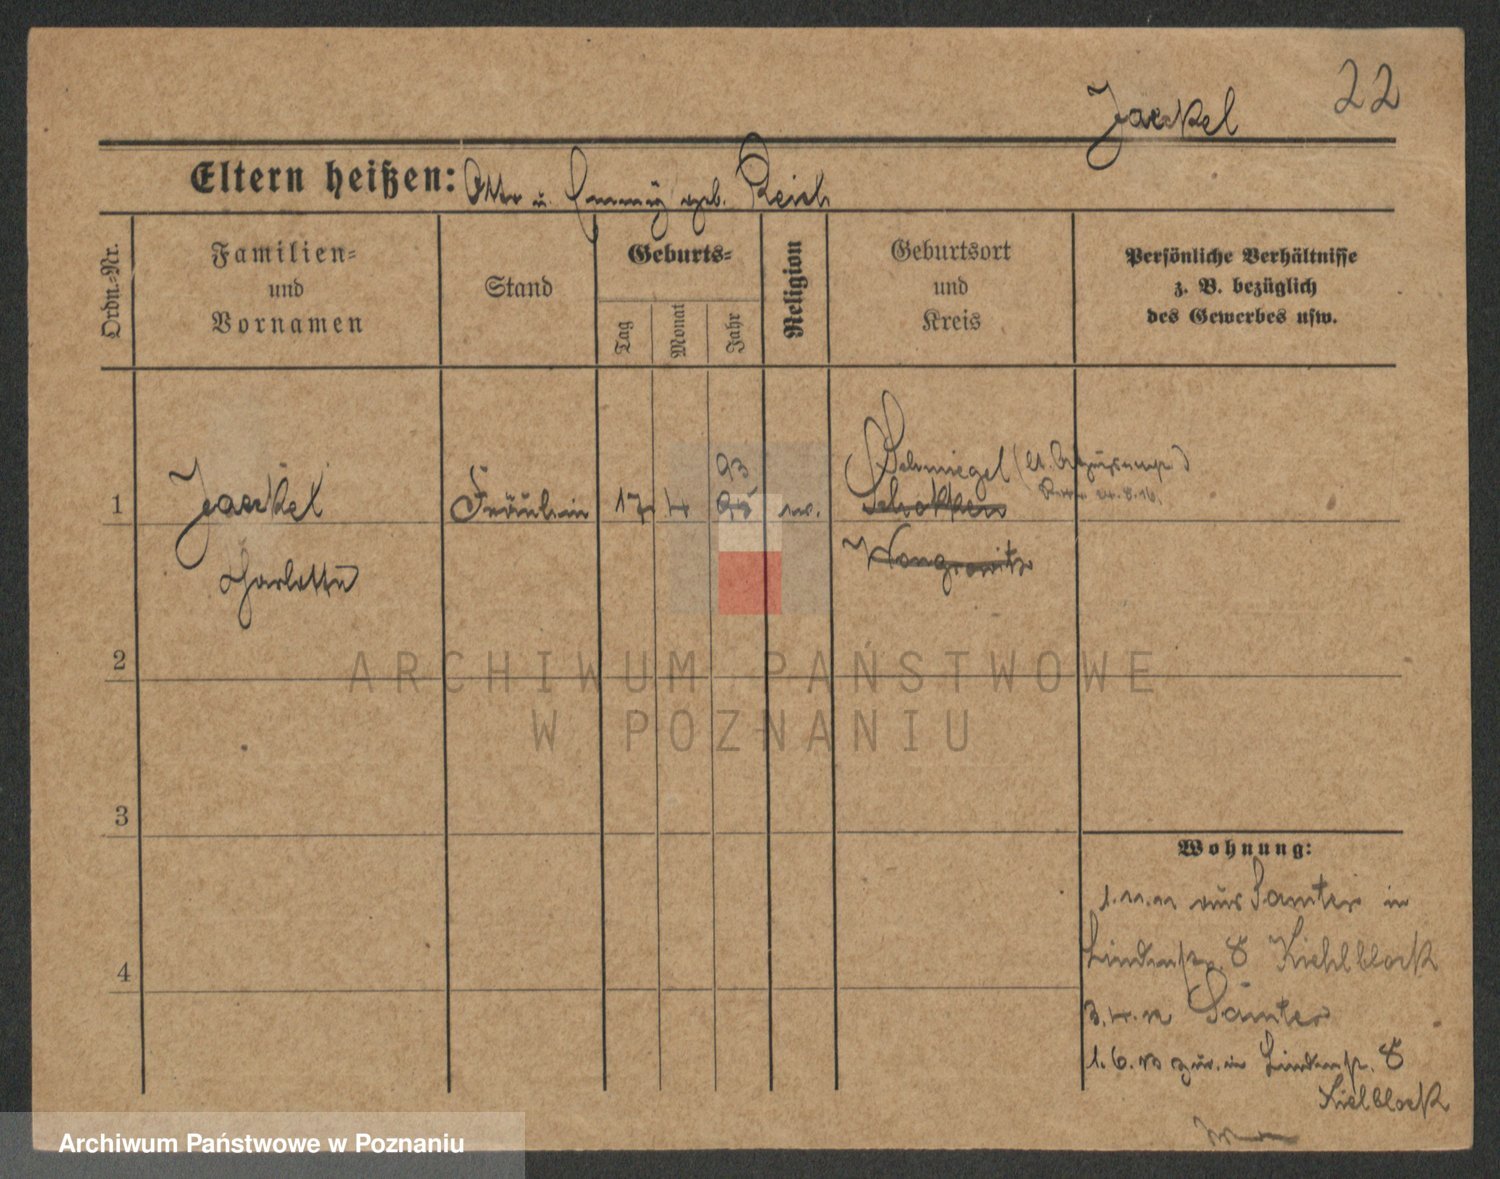 22
Jaeckel
Eltern heißen: Otto u. Fanny geb. Reich
Ordn.=Nr.
Familien=
und
Vornamen
Stand
Geburts=
Tag
Monat
Jahr
Religion
Geburtsort
und
Kreis
Persönliche Verhältnisse
z. B. bezüglich
des Gewerbes usw.
93
Schmiegel (lt.
1 Jaeckel Fräulein 17 4 95 ev. Schokken
Charlotte
Wongrowitz
2
3
4
Wohnung:
1.11.11 aus Samter in
Lindenstr. 8 Kiehlblock
3.4.12 Samter
1.6.13 zur. in Lindenstr. 8
Kielblock
ARCHIWUM PAŃSTWOWE
W POZNANIU
Archiwum Państwowe w Poznaniu